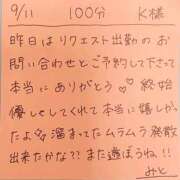 9/11 100分 K様
昨日はリクエスト出勤のお
問い合わせとご予約して下さって
本当にありがとう♡ 終始
優しくしてくれて本当に嬉しかっ
たよ 溜まってたムラムラ発散
出来たかな?? また遊ぼうね!!
みと